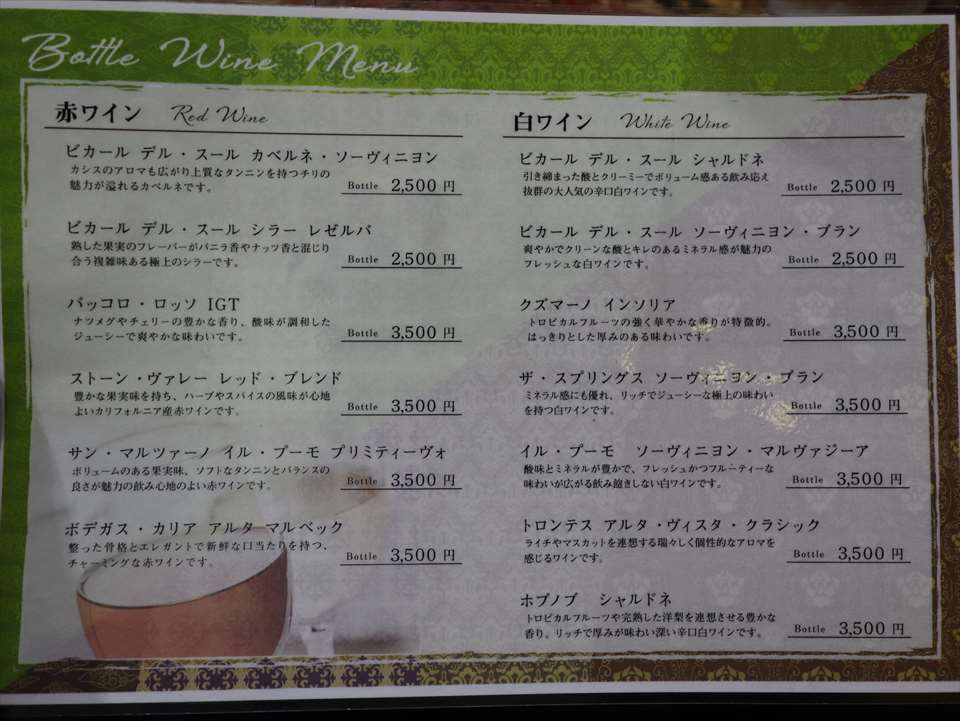 Bottle Wine Menu
赤ワイン Red Wine
ビカール デル・スール カベルネ・ソーヴィニヨン
カシスのアロマも広がり上質なタンニンを持つチリの
魅力が溢れるカベルネです。
Bottle 2,500 円
ビカール デル・スール シラー レゼルバ
熟した果実のフレーバーがバニラ香やナッツ香と混じり
合う複雑味ある極上のシラーです。
Bottle 2,500 円
バッコロ・ロッソ IGT
ナツメグやチェリーの豊かな香り、酸味が調和した
ジューシーで爽やかな味わいです。
Bottle 3,500 円
ストーン・ヴァレー レッド・ブレンド
豊かな果実味を持ち、ハーブやスパイスの風味が心地
よいカリフォルニア産赤ワインです。
Bottle 3,500 円
サン・マルツァーノ イル・プーモ プリミティーヴォ
ボリュームのある果実味、ソフトなタンニンとバランスの
良さが魅力の飲み心地のよい赤ワインです。
Bottle 3,500 円
ボデガス・カリア アルタ マルベック
整った骨格とエレガントで新鮮な口当たりを持つ、
チャーミングな赤ワインです。
Bottle 3,500 円
白ワイン White Wine
ビカール デル・スール シャルドネ
引き締まった酸とクリーミーでボリューム感ある飲み応え
抜群の大人気の辛口白ワインです。
Bottle 2,500 円
ビカール デル・スール ソーヴィニヨン・ブラン
爽やかでクリーンな酸とキレのあるミネラル感が魅力の
フレッシュな白ワインです。
Bottle 2,500 円
クズマーノ インソリア
トロピカルフルーツの強く華やかな香りが特徴的。
はっきりとした厚みのある味わいです。
Bottle 3,500 円
ザ・スプリングス ソーヴィニヨン・ブラン
ミネラル感にも優れ、リッチでジューシーな極上の味わい
を持つ白ワインです。
Bottle 3,500 円
イル・プーモ ソーヴィニヨン・マルヴァジーア
酸味とミネラルが豊かで、フレッシュかつフルーティーな
味わいが広がる飲み飽きしない白ワインです。
Bottle 3,500 円
トロンテス アルタ・ヴィスタ・クラシック
ライチやマスカットを連想する瑞々しく個性的なアロマを
感じるワインです。
Bottle 3,500 円
ホブノブ シャルドネ
トロピカルフルーツや完熟した洋梨を連想させる豊かな
香り。リッチで厚みが味わい深い辛口白ワインです。
Bottle 3,500 円